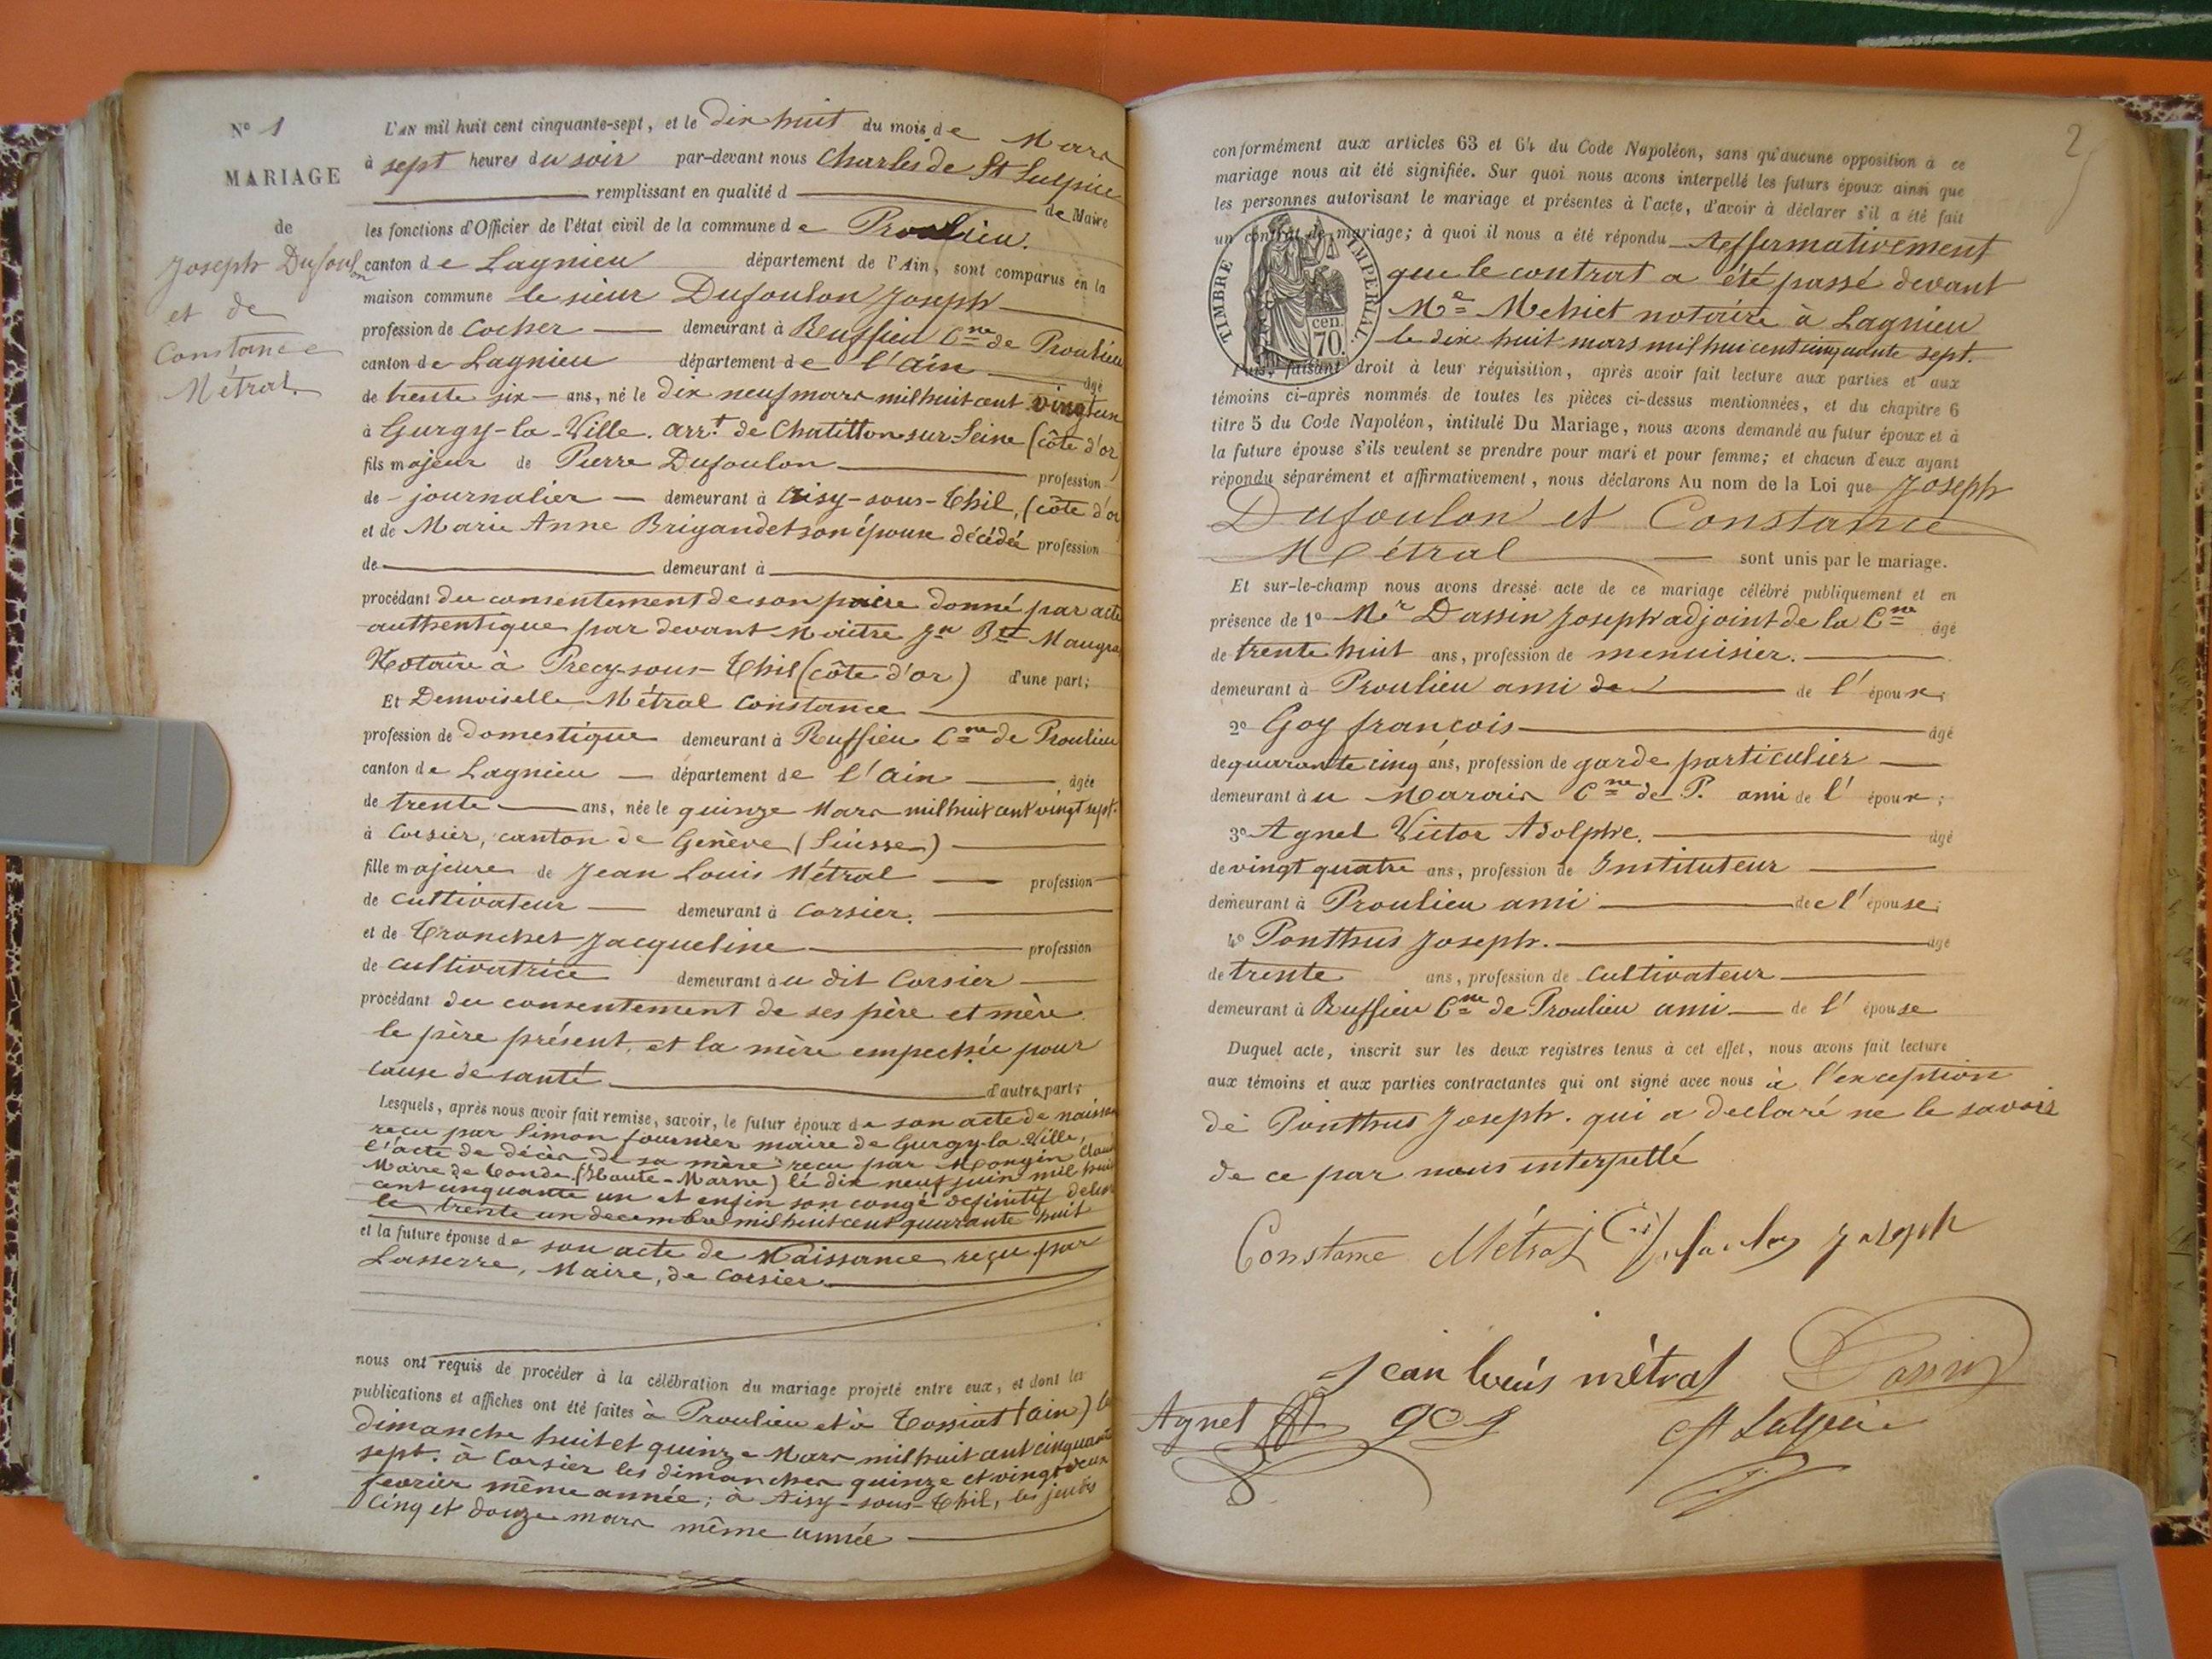 N° 1
MARIAGE
de
Joseph Dufoulon
et de
Constance
Métral.
L'AN mil huit cent cinquante-sept, et le dix huit du mois de Mars
à sept heures du soir par-devant nous Charles de St Sulpice
remplissant en qualité d de Maire
les fonctions d'Officier de l'état civil de la commune de Proulieu.
canton de Lagnieu département de l'Ain, sont comparus en la
maison commune le sieur Dufoulon Joseph
profession de Cocher demeurant à Ruffieu Cne de Proulieu
canton de Lagnieu département de l'Ain âgé
de trente six ans, né le dix neuf mars mil huit cent vingt un
à Gurgy-la-Ville. arrt de Chatillon sur-Seine (côte d'or)
fils majeur de Pierre Dufoulon profession
de journalier demeurant à Aisy-sous-Thil, (côte d'or
et de Marie Anne Brigandet son épouse décédée profession
de demeurant à
procédant du consentement de son père donné par acte
authentique par devant Maître Jn Bte Maugras
Notaire à Precy-sous-Thil (côte d'or) d'une part;
Et Demoiselle Métral Constance
profession de domestique demeurant à Ruffieu Cne de Proulieu
canton de Lagnieu département de l'Ain âgée
de trente ans, née le quinze Mars mil huit cent vingt sept.
à Corsier, canton de Genève (Suisse)
fille majeure de Jean Louis Métral profession
de cultivateur demeurant à Corsier.
et de Tronchet Jacqueline profession
de cultivatrice demeurant à u dit Corsier
procédant du consentement de ses père et mère
le père présent, et la mère empechée pour
cause de santé d'autre part;
Lesquels, après nous avoir fait remise, savoir, le futur époux de son acte de naissa
reçu par Simon fournier maire de Gurgy-la-Ville,
l'acte de décès de sa mère reçu par Mongin
Maire de (Haute-Marne) le dix neuf juin mil huit
cent cinquante un et enfin son congé definitif
le trente un decembre mil huit cent quarante huit
et la future épouse de son acte de Naissance reçu par
Lasserre, Maire, de Corsier
nous ont requis de procéder à la célébration du mariage projeté entre eux, et dont les
publications et affiches ont été faites à Proulieu et à Tossiat (ain) le
dimanche huit et quinze Mars mil huit cent cinquante
sept. à Corsier les dimanches quinze et vingt deux
fevrier même année; à Aisy-sous-Thil, les jeudis
cinq et douze mars même année
2
conformément aux articles 63 et 64 du Code Napoléon, sans qu'aucune opposition à ce
mariage nous ait été signifiée. Sur quoi nous avons interpellé les futurs époux ainsi que
les personnes autorisant le mariage et présentes à l'acte, d'avoir à déclarer s'il a été fait
un contrat de mariage; à quoi il nous a été répondu Affirmativement
que le contrat a été passé devant
Me Mehiet notaire à Lagnieu
le dix huit mars mil huit cent cinquante sept.
TIMBRE IMPERIAL
70 cen.
Puis, faisant droit à leur réquisition, après avoir fait lecture aux parties et aux
témoins ci-après nommés de toutes les pièces ci-dessus mentionnées, et du chapitre 6
titre 5 du Code Napoléon, intitulé Du Mariage, nous avons demandé au futur époux et à
la future épouse s'ils veulent se prendre pour mari et pour femme; et chacun d'eux ayant
répondu séparément et affirmativement, nous déclarons Au nom de la Loi que Joseph
Dufoulon et Constance
Métral sont unis par le mariage.
Et sur-le-champ nous avons dressé acte de ce mariage célébré publiquement et en
présence de 1° Mr Dassin Joseph adjoint de la Cne âgé
de trente huit ans, profession de menuisier.
demeurant à Proulieu ami de de l'époux;
2° Goy françois âgé
de quarante cinq ans, profession de garde particulier
demeurant à u Marais Cne de P. ami de l'époux;
3° Agnel Victor Adolphe. âgé
de vingt quatre ans, profession de Instituteur
demeurant à Proulieu ami de l'épouse;
4° Ponthus Joseph. âgé
de trente ans, profession de Cultivateur
demeurant à Ruffieu Cne de Proulieu ami de l'épouse
Duquel acte, inscrit sur les deux registres tenus à cet effet, nous avons fait lecture
aux témoins et aux parties contractantes qui ont signé avec nous à l'exception
de Ponthus Joseph. qui a declaré ne le savoir
de ce par nous interpellé
Constance Métral Dufoulon Joseph
Jean louis métral Dassin
Agnel goy St Sulpice